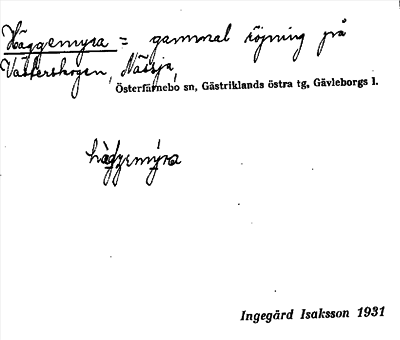 Häggemyra = gammal röjning på
Västerskogen, Näsja,
Österfärnebo sn, Gästriklands östra tg, Gävleborgs l.
häggemy̍ra
Ingegärd Isaksson 1931